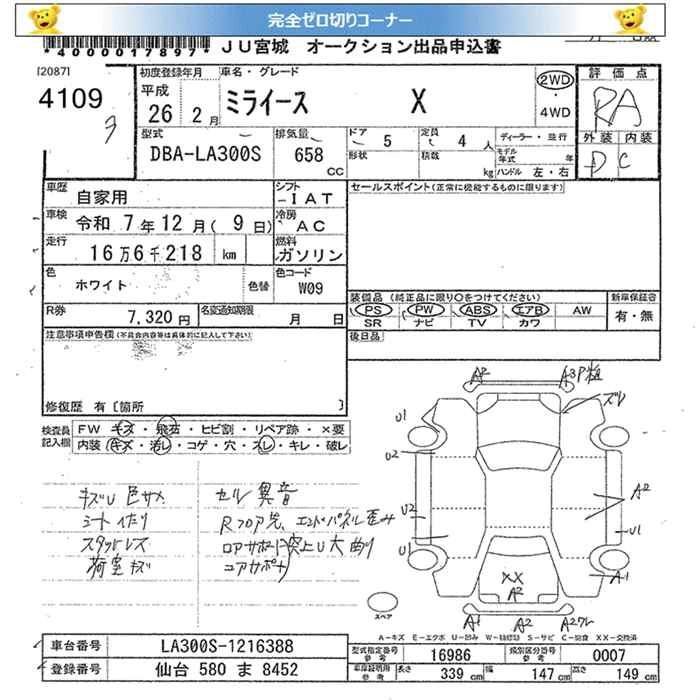 完全ゼロ切りコーナー
*4000017897* JU宮城 オークション出品申込書
[2087]
4109
初度登録年月
平成
26 2月
車名・グレード
ミライース X
2WD
4WD
評価点
RA
外装 内装
D C
型式
DBA-LA300S
排気量
658
CC
ドア 5
形状
定員 4 人
積数 kg
ディーラー・並行
モデル年式 年
ハンドル 左・右
車歴
自家用
シフト
IAT
セールスポイント(正常に機能するものに限ります)
車検
令和 7年 12月( 9日)
冷房
AC
走行
16万6千218 km
燃料
ガソリン
色
ホワイト
色替
色コード
W09
R券
7,320円
名変通知期限
月 日
装備品(純正品に限り○をつけてください)
PS PW ABS エアB AW
SR ナビ TV カワ
新車保証書
有・無
後日品
注意事項申告欄(不具合内容等は具体的に記入して下さい)
修復歴 有〔箇所 〕
検査員記入欄
FW キズ・飛石・ヒビ割・リペア跡・×要
内装 キズ・汚レ・コゲ・穴・スレ・キレ・破レ
キズU色サメ
シートヘタリ
スタッドレス
荷室キズ
セル異音
Rフロア先、エンドパネル歪み
ロアサポート突上U大曲り
コアサポサ
A2
A3P粗
ズレ
U1
U2
U2
U1
A2
U1
A1
XX
A2
A1
A2
A2ワレ
スペア
A-キズ E-エクボ U-凹み W-補修跡 S-サビ C-腐食 XX-交換済
車台番号
LA300S-1216388
登録番号
仙台 580 ま 8452
型式指定番号
参考
16986
類別区分番号
参考
0007
車庫証明用
参考
長さ 339 cm
幅 147 cm
高さ 149 cm